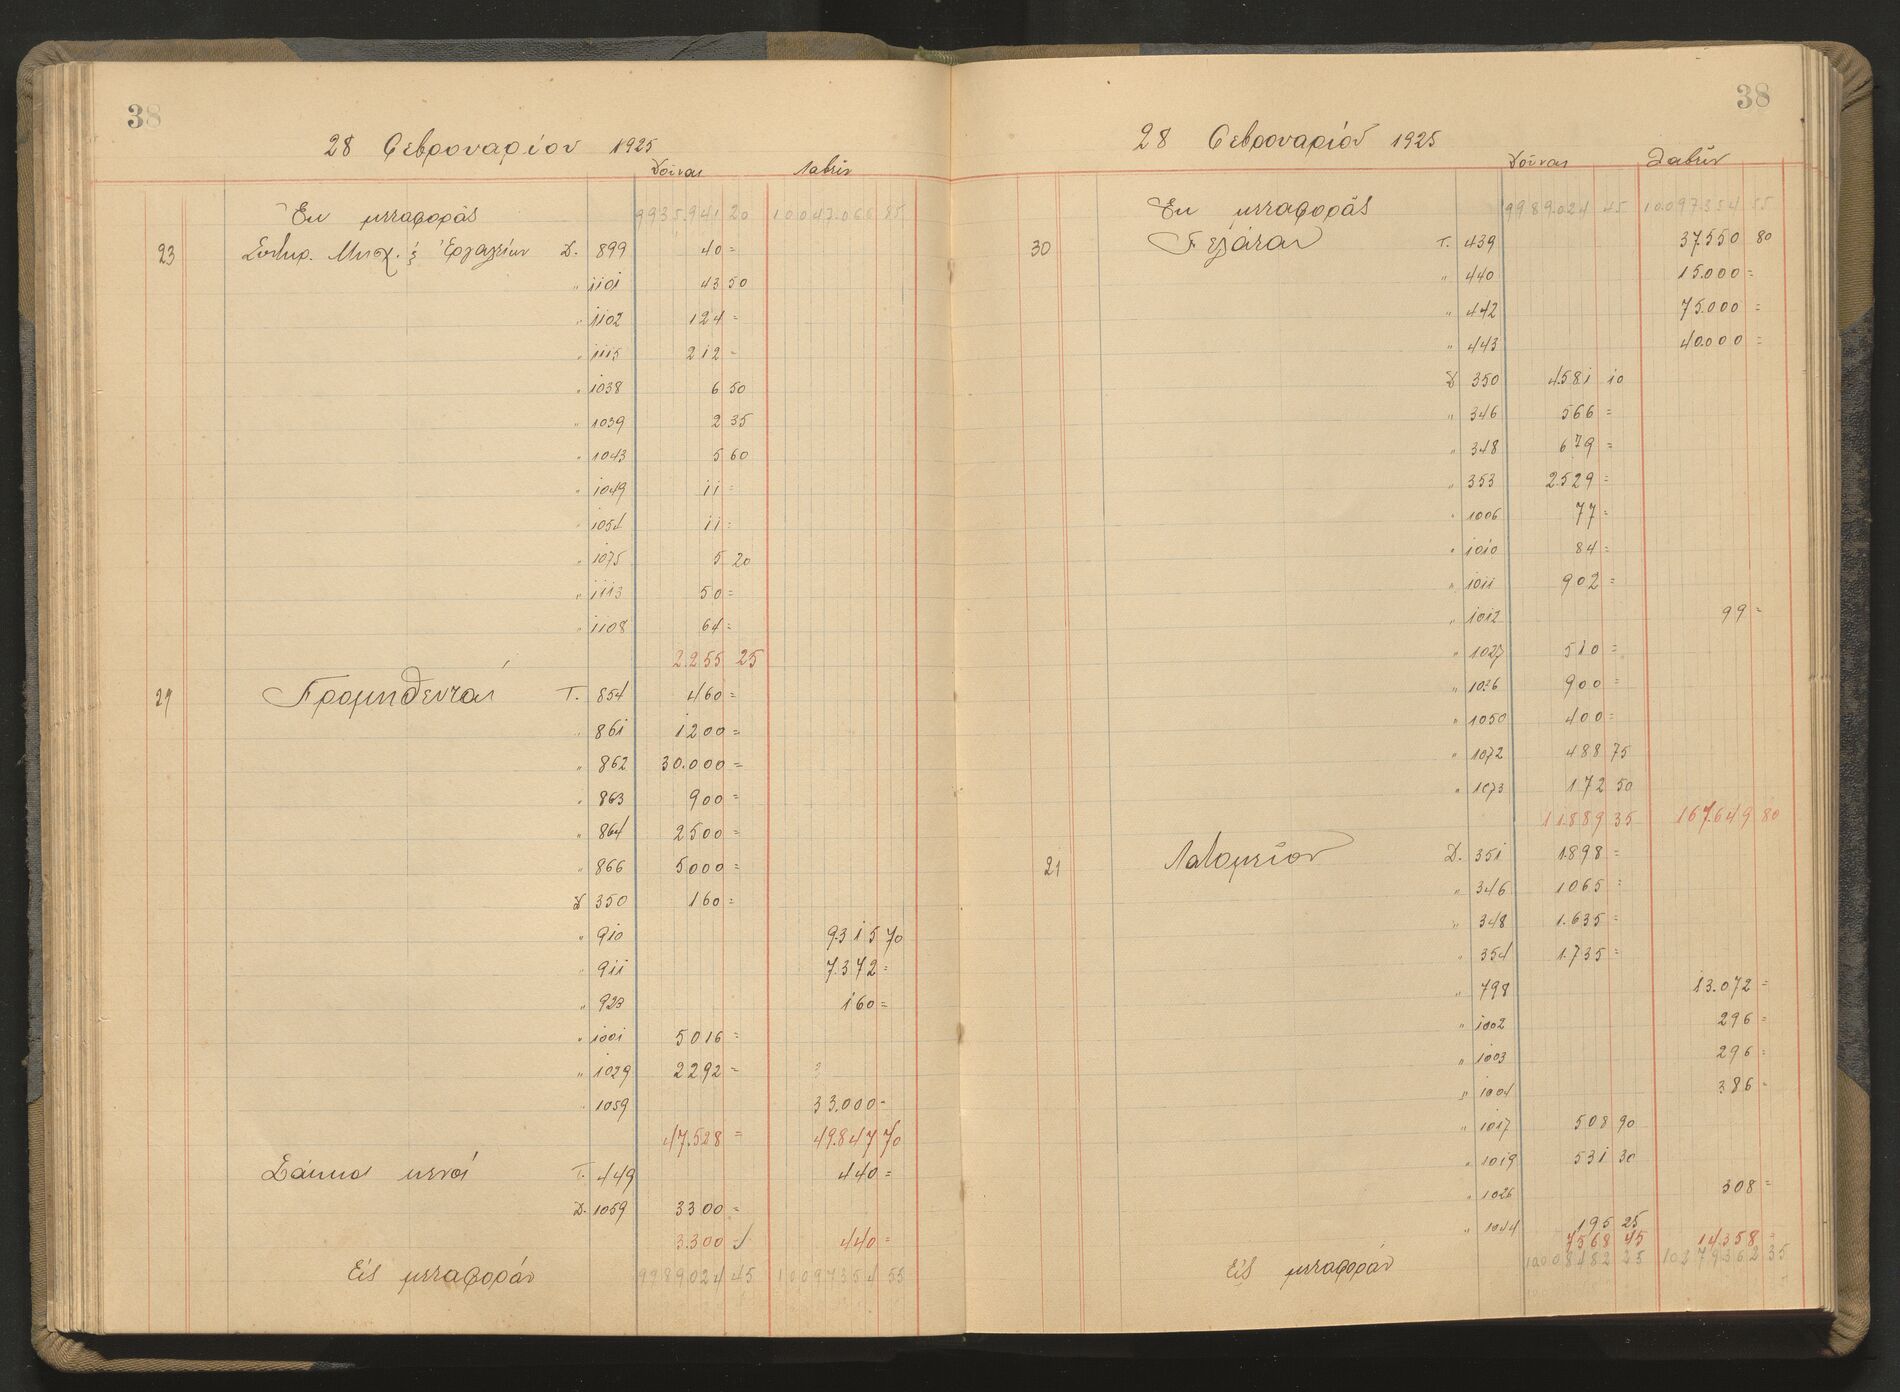 38
28 Φεβρουαρίου 1925
Δοῦναι Λαβεῖν
Ἐκ μεταφορᾶς 9935.941 20 10.047.066 85
23 Συντηρ. Μηχ. & Ἐργαλείων Δ. 899 40 =
" 1101 43 50
" 1102 124 =
" 1115 212 =
" 1038 6 50
" 1039 2 35
" 1043 5 60
" 1049 11 =
" 1054 11 =
" 1075 5 20
" 1113 50 =
" 1108 64 =
2.255 25
29 Προμηθευταί Τ. 854 460 =
" 861 1200 =
" 862 30.000 =
" 863 900 =
" 864 2500 =
" 866 5000 =
Δ 350 160 =
" 910 9.315 70
" 911 7.372 =
" 923 160 =
" 1001 5016 =
" 1029 2292 =
" 1059 33.000 =
47.528 = 49.847 70
Σάκκοι κενοί Τ. 449 440 =
Δ. 1059 3300 =
3.300 = 440 =
Εἰς μεταφοράν 9989024 45 10097354 55
38
28 Φεβρουαρίου 1925
Δοῦναι Λαβεῖν
Ἐκ μεταφορᾶς 9989.024 45 10.097.354 55
30 Πελάται Τ. 439 37.550 80
" 440 15.000 =
" 442 75.000 =
" 443 40.000 =
Δ 350 4.581 10
" 346 566 =
" 348 679 =
" 353 2.529 =
" 1006 77 =
" 1010 84 =
" 1011 902 =
" 1012 99 =
" 1027 510 =
" 1026 900 =
" 1050 400 =
" 1072 488 75
" 1073 172 50
11.889 35 167.649 80
21 Λατομεῖον Δ. 351 1.898 =
" 346 1065 =
" 348 1.635 =
" 354 1.735 =
" 798 13.072 =
" 1002 296 =
" 1003 296 =
" 1004 386 =
" 1017 508 90
" 1019 531 30
" 1026 308 =
" 1044 195 25
7568 45 14.358 =
Εἰς μεταφοράν 10008482 25 10279362 35